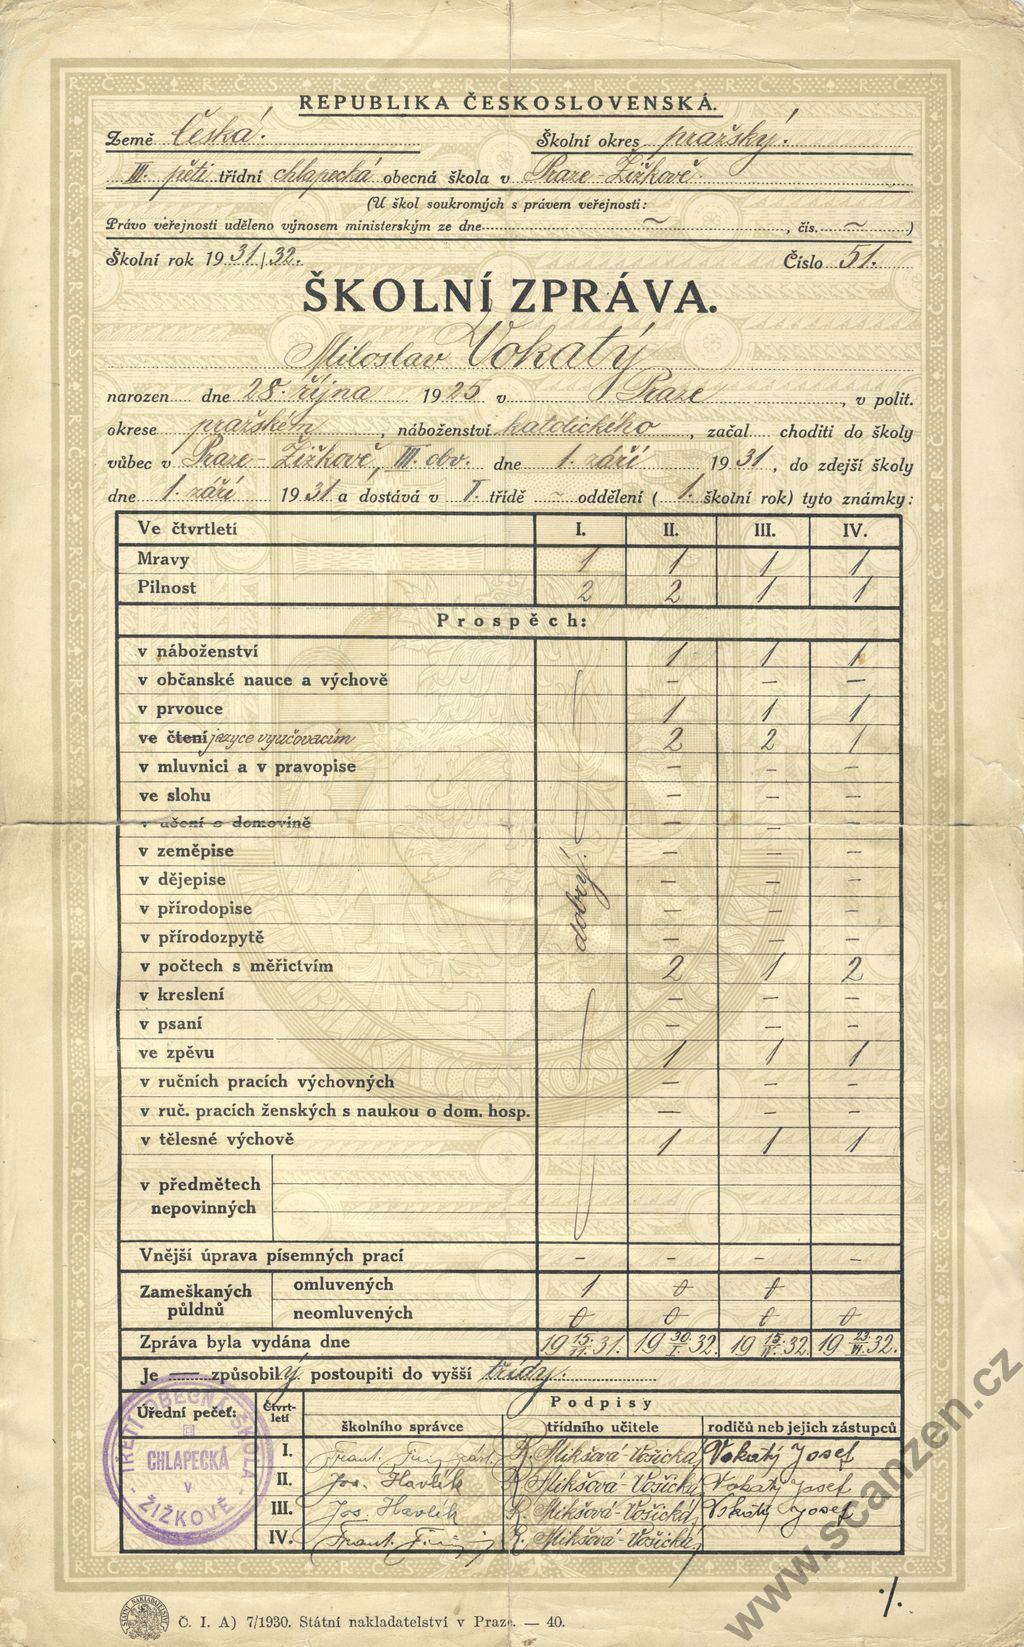 REPUBLIKA ČESKOSLOVENSKÁ.
Země Česká. Školní okres pražský.
III. pěti třídní chlapecká obecná škola v Praze-Žižkově.
(U škol soukromých s právem veřejnosti:
Právo veřejnosti uděleno výnosem ministerským ze dne ~, čís. ~)
Školní rok 1931/32. Číslo 51.
ŠKOLNÍ ZPRÁVA.
Miloslav Vokatý
narozen dne 28. října 1925 v Praze, v polit.
okrese pražském, náboženství katolického, začal choditi do školy
vůbec v Praze-Žižkově, III. obv. dne 1. září 1931, do zdejší školy
dne 1. září 1931 a dostává v I. třídě ~ oddělení (1. školní rok) tyto známky:
Ve čtvrtletí I. II. III. IV.
Mravy 1 1 1 1
Pilnost 2 2 1 1
Prospěch:
dobrý.
v náboženství 1 1 1
v občanské nauce a výchově – – –
v prvouce 1 1 1
ve čtení jazyce vyučovacím 2 2 1
v mluvnici a v pravopise – – –
ve slohu – – –
v učení o domovině – – –
v zeměpise – – –
v dějepise – – –
v přírodopise – – –
v přírodozpytě – – –
v počtech s měřictvím 2 1 2
v kreslení – – –
v psaní – – –
ve zpěvu 1 1 1
v ručních pracích výchovných – – –
v ruč. pracích ženských s naukou o dom. hosp. – – –
v tělesné výchově 1 1 1
v předmětech
nepovinných
Vnější úprava písemných prací – – –
Zameškaných půldnů
omluvených 1 0 0
neomluvených 0 0 0 0
Zpráva byla vydána dne 19 15/11. 31. 19 30/I. 32. 19 15/IV. 32. 19 23/VI. 32.
Je způsobilý postoupiti do vyšší třídy.
Úřední pečeť: Čtvrt-letí Podpisy
školního správce třídního učitele rodičů neb jejich zástupců
I. Frant. R. Mikšová-Vošická Vokatý Josef
II. Jos. Havlík R. Mikšová-Vošická Vokatý Josef
III. Jos. Havlík R. Mikšová-Vošická Vokatý Josef
IV. Frant. R. Mikšová-Vošická
TŘETÍ OBECNÁ ŠKOLA
CHLAPECKÁ
V
ŽIŽKOVĚ
./.
STÁTNÍ NAKLADATELSTVÍ
Č. I. A) 7/1930. Státní nakladatelství v Praze. — 40.
www.scanzen.cz